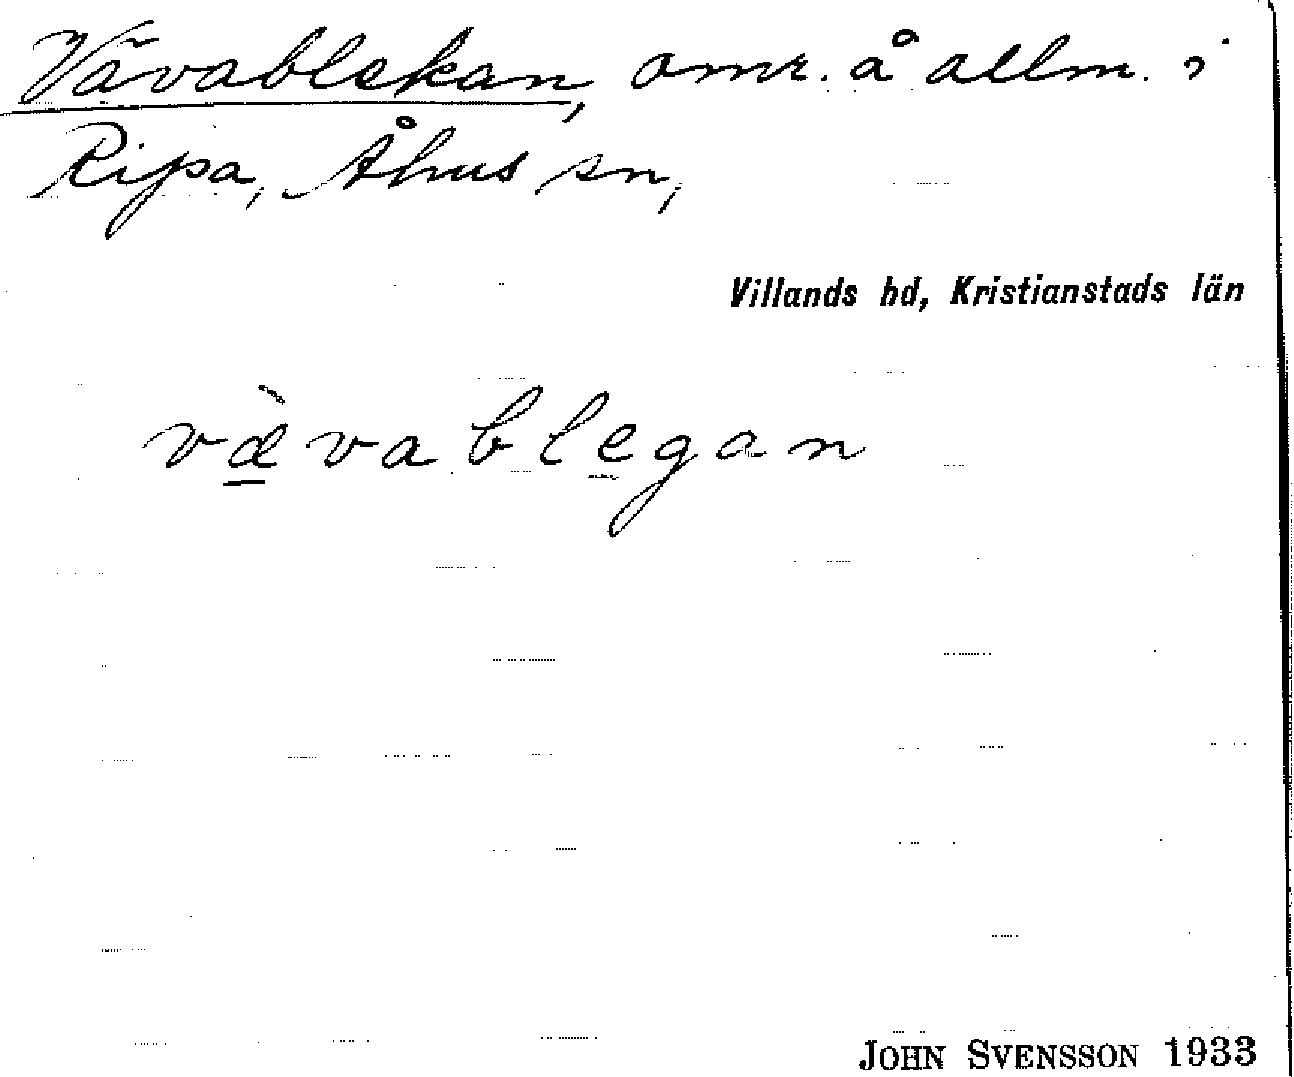 Vävablekan, omr. å allm. i
Ripa, Åhus sn,
Villands hd, Kristianstads län
væ̀vablegan
JOHN SVENSSON 1933